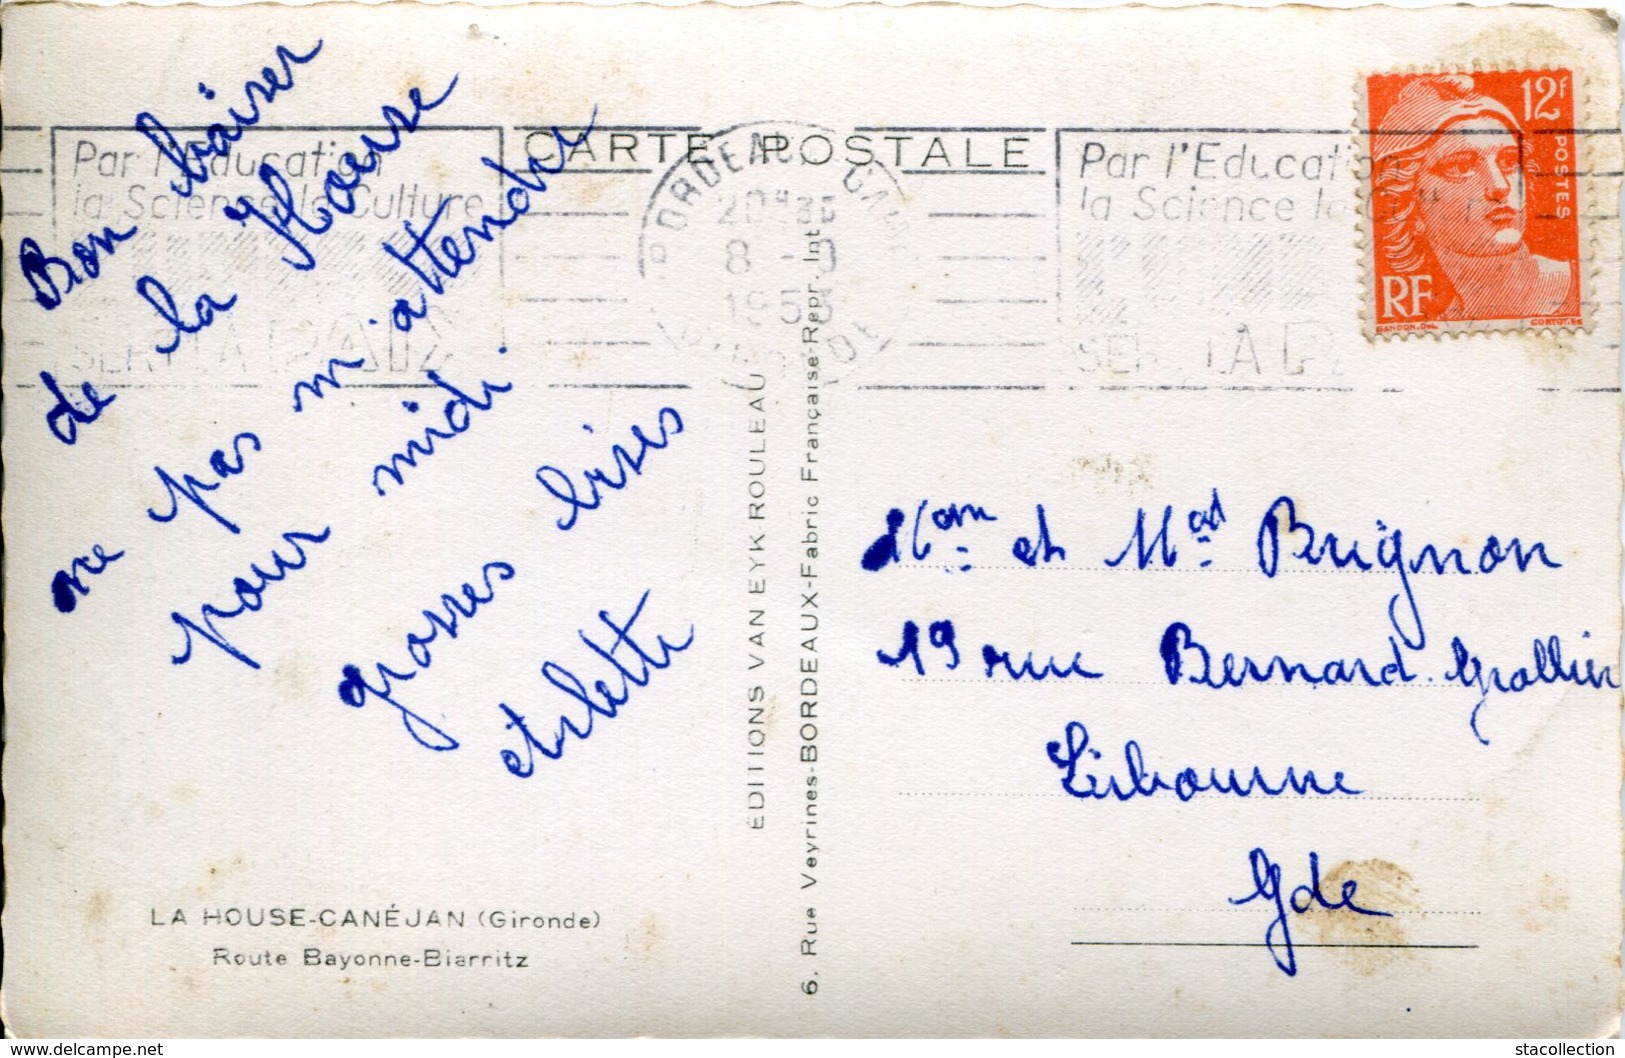 Bon baiser
de la House
ne pas m'attendre
pour midi.
grosses bises
Arlette
LA HOUSE-CANÉJAN (Gironde)
Route Bayonne-Biarritz
CARTE POSTALE
Par l'Education
la Science la Culture
BORDEAUX
8 - 9
1953
GIRONDE
Par l'Education
la Science la Culture
12F
POSTES
RF
GANDON.DEL.
CORTOT.SC
ÉDITIONS VAN EYK ROULEAU
6. Rue Veyrines-BORDEAUX-Fabric Française-Repr. Int
et Mad Brignon
19 rue Bernard.
Libourne
Gde
https://www.delcampe.net
stacollection